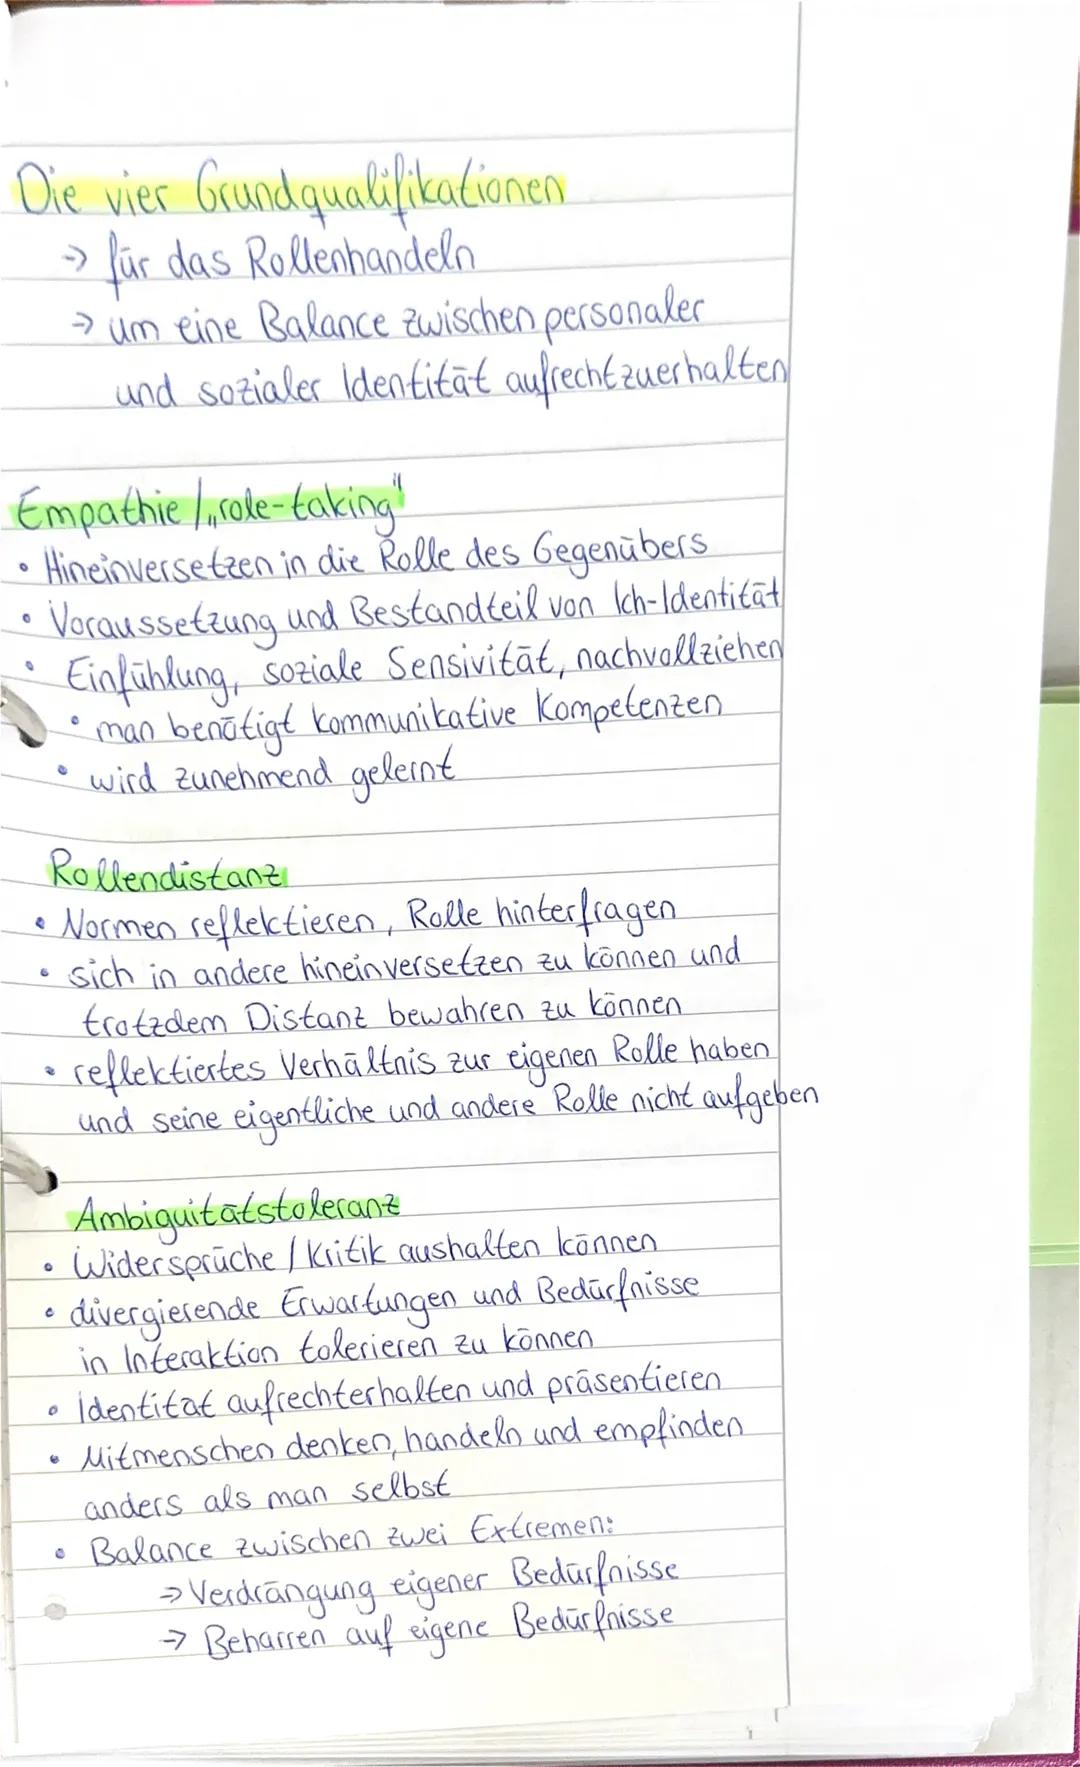 Die vier Grundqualifikationen
→ für das Rollenhandeln
→ um eine Balance zwischen personaler
und sozialer Identität aufrechtzuerhalten
Empathie / „role-taking"
• Hineinversetzen in die Rolle des Gegenübers
• Voraussetzung und Bestandteil von Ich-Identität
• Einfühlung, soziale Sensivität, nachvollziehen
• man benötigt kommunikative Kompetenzen
• wird zunehmend gelernt
Rollendistanz
• Normen reflektieren, Rolle hinterfragen
• sich in andere hineinversetzen zu können und
trotzdem Distanz bewahren zu können
• reflektiertes Verhältnis zur eigenen Rolle haben
und seine eigentliche und andere Rolle nicht aufgeben
Ambiguitätstoleranz
• Widersprüche / Kritik aushalten können
• divergierende Erwartungen und Bedürfnisse
in Interaktion tolerieren zu können
• Identität aufrechterhalten und präsentieren
• Mitmenschen denken, handeln und empfinden
anders als man selbst
• Balance zwischen zwei Extremen:
→ Verdrängung eigener Bedürfnisse
→ Beharren auf eigene Bedürfnisse